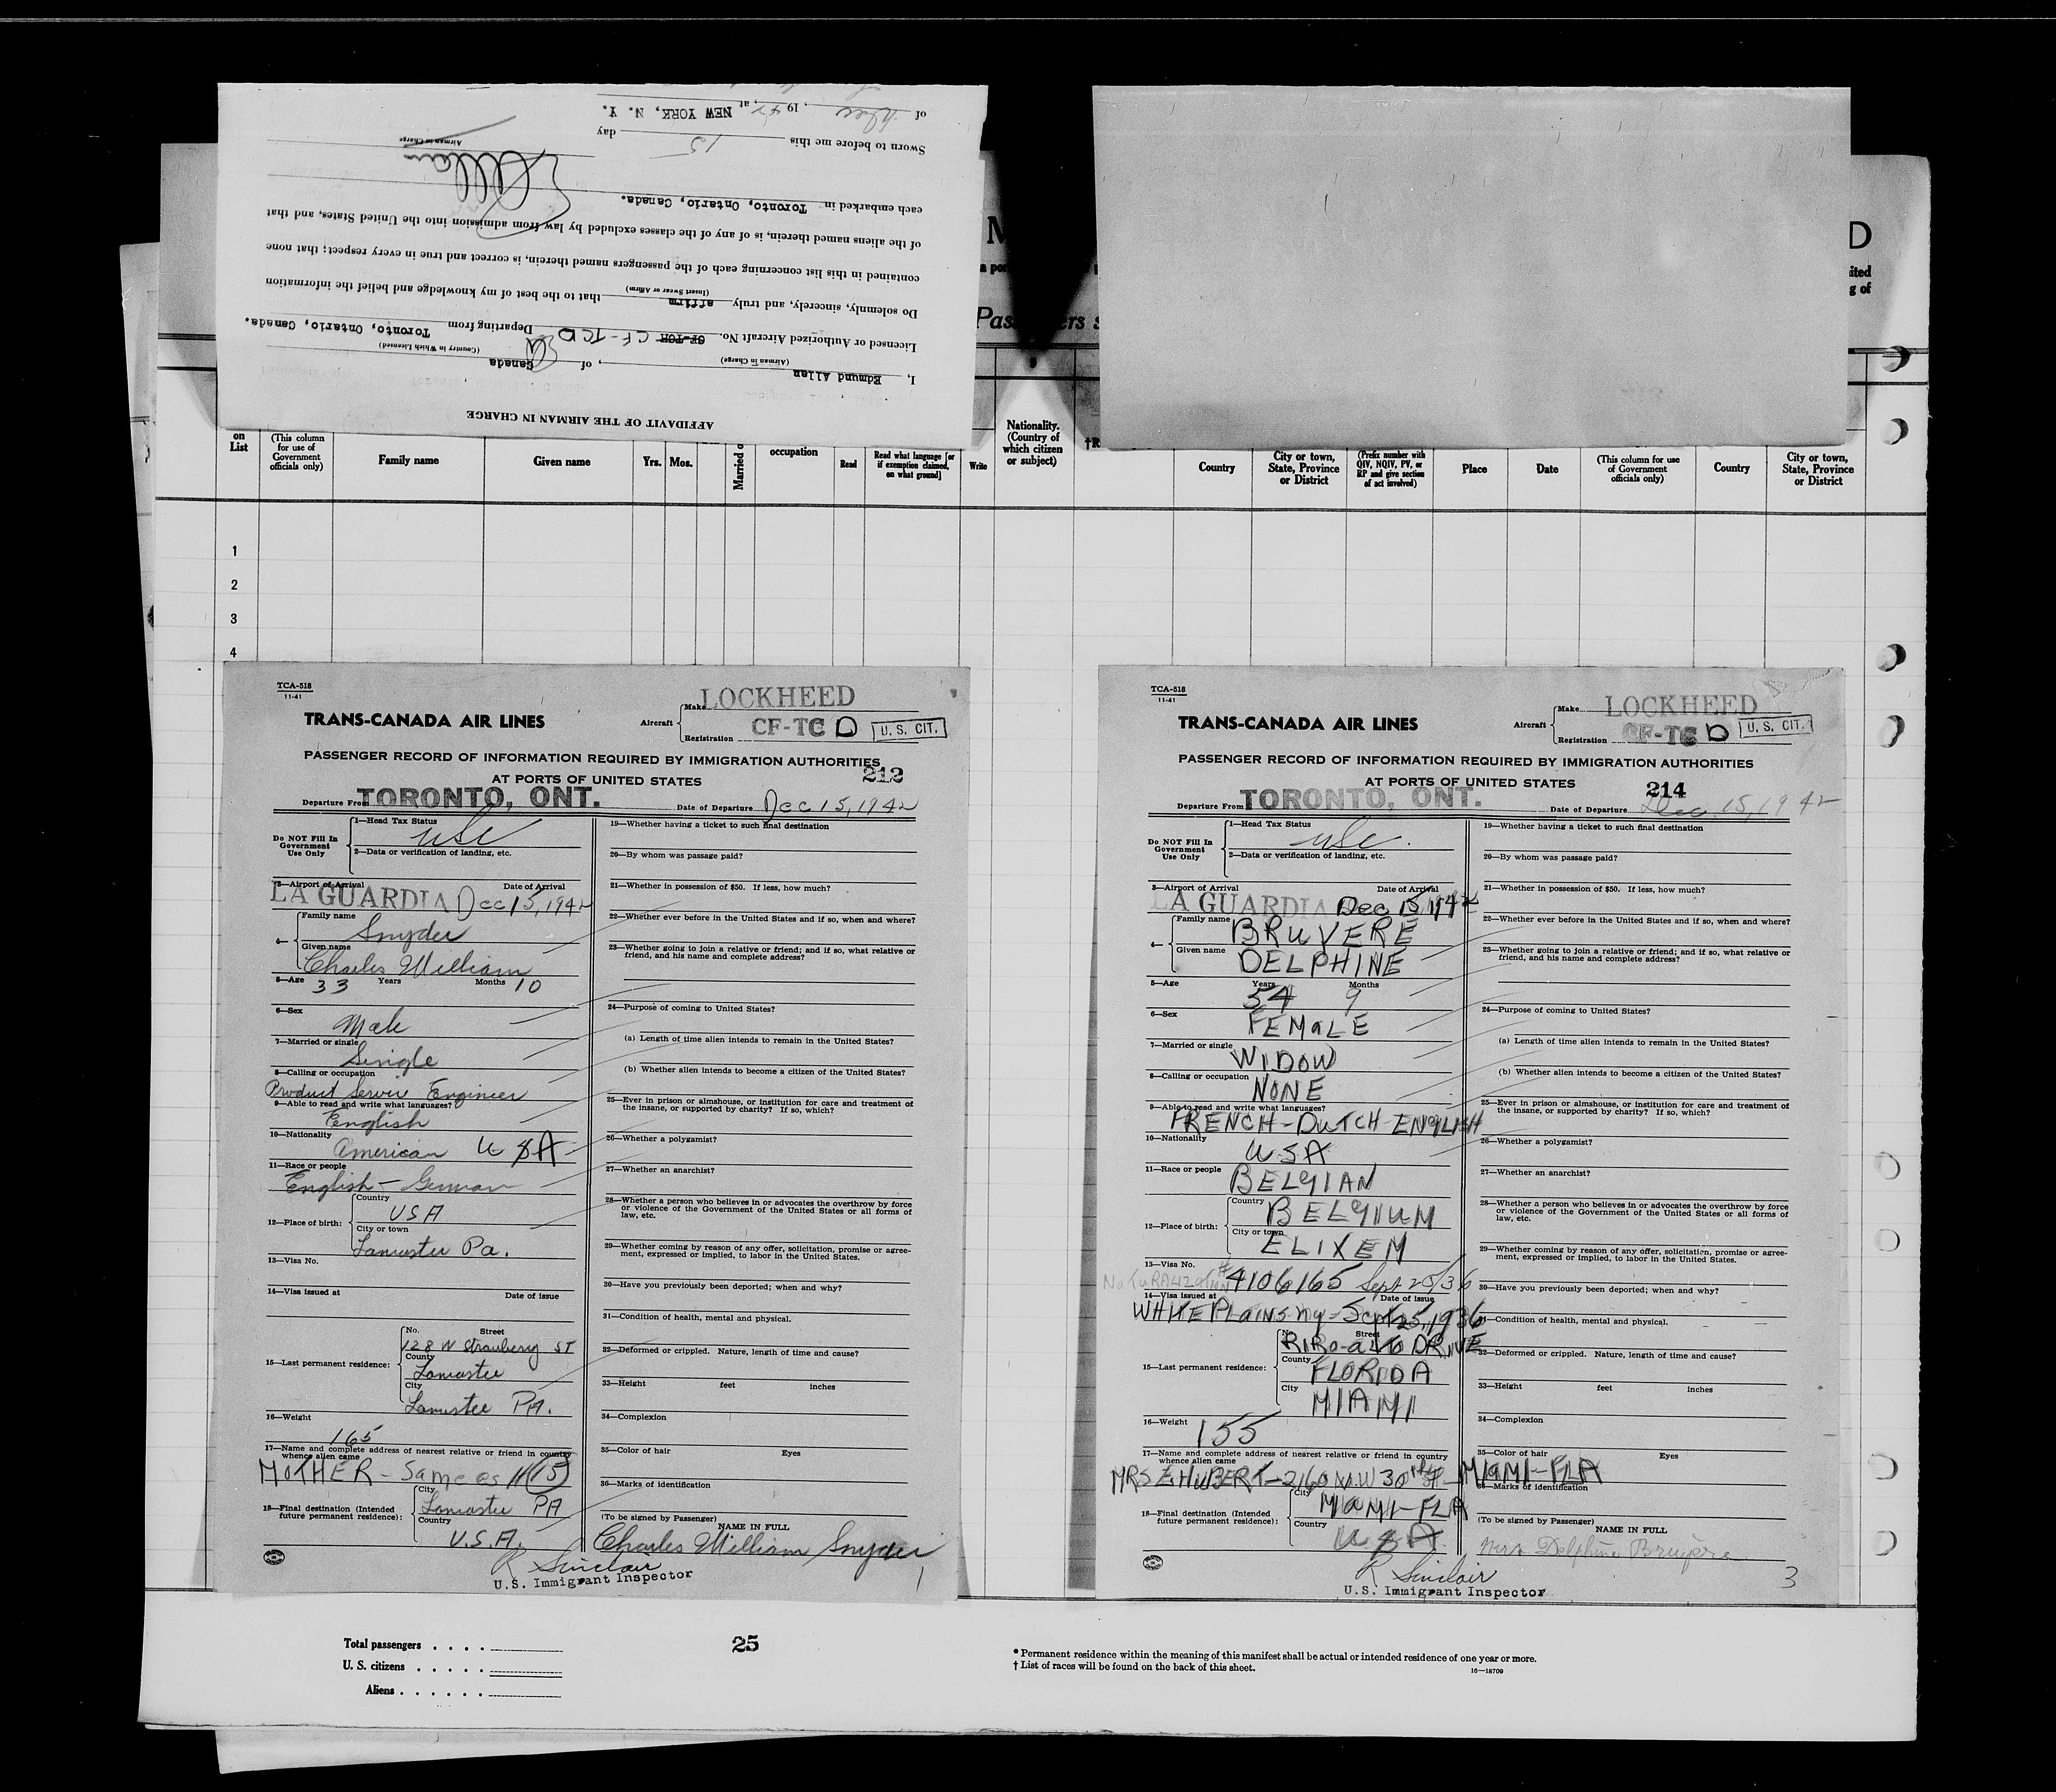 AFFIDAVIT OF THE AIRMAN IN CHARGE
I, Edmund Allan , of Canada
(Airman in Charge) (Country in Which Licensed)
Licensed or Authorized Aircraft No. CF-TCH CF-TCD Departing from Toronto, Ontario, Canada.
Do solemnly, sincerely, and truly affirm that to the best of my knowledge and belief the information
(Insert Swear or Affirm)
contained in this list concerning each of the passengers named therein, is correct and true in every respect; that none
of the aliens named therein, is of any of the classes excluded by law from admission into the United States, and that
each embarked in Toronto, Ontario, Canada.
EAllan
Airman in Charge
Sworn to before me this 15 day
of Dec , 1942, at NEW YORK, N. Y.
M
D
a po
ited
g of
Pas
ers s
on List
(This column for use of Government officials only)
Family name
Given name
Yrs.
Mos.
Married o
occupation
Read
Read what language [or if exemption claimed, on what ground]
Write
Nationality. (Country of which citizen or subject)
†R
Country
City or town, State, Province or District
(Prefix number with QIV, NQIV, PV, or RP and give section of act involved)
Place
Date
(This column for use of Government officials only)
Country
City or town, State, Province or District
1
2
3
4
TCA-518
11-41
TRANS-CANADA AIR LINES
Aircraft
Make LOCKHEED
Registration CF-TC D
U. S. CIT.
PASSENGER RECORD OF INFORMATION REQUIRED BY IMMIGRATION AUTHORITIES
AT PORTS OF UNITED STATES
212
Departure From TORONTO, ONT. Date of Departure Dec 15, 1942
Do NOT Fill In Government Use Only
1—Head Tax Status
USC
2—Data or verification of landing, etc.
3—Airport of Arrival Date of Arrival
LA GUARDIA Dec 15, 1942
4—
Family name
Snyder
Given name
Charles William
5—Age 33 Years Months 10
6—Sex
Male
7—Married or single
Single
8—Calling or occupation
Product Service Engineer
9—Able to read and write what languages?
English
10—Nationality
American USA
11—Race or people
English - German
12—Place of birth:
Country
USA
City or town
Lancaster Pa.
13—Visa No.
14—Visa issued at Date of issue
15—Last permanent residence:
No. Street
128 N Strawberry ST
County
Lancaster
City
Lancaster PA.
16—Weight
165
17—Name and complete address of nearest relative or friend in country
whence alien came
MOTHER - Same as # (15)
18—Final destination (Intended
future permanent residence):
City
Lancaster PA
Country
U.S.A.
19—Whether having a ticket to such final destination
20—By whom was passage paid?
21—Whether in possession of $50. If less, how much?
22—Whether ever before in the United States and if so, when and where?
23—Whether going to join a relative or friend; and if so, what relative or
friend, and his name and complete address?
24—Purpose of coming to United States?
(a) Length of time alien intends to remain in the United States?
(b) Whether alien intends to become a citizen of the United States?
25—Ever in prison or almshouse, or institution for care and treatment of
the insane, or supported by charity? If so, which?
26—Whether a polygamist?
27—Whether an anarchist?
28—Whether a person who believes in or advocates the overthrow by force
or violence of the Government of the United States or all forms of
law, etc.
29—Whether coming by reason of any offer, solicitation, promise or agree-
ment, expressed or implied, to labor in the United States.
30—Have you previously been deported; when and why?
31—Condition of health, mental and physical.
32—Deformed or crippled. Nature, length of time and cause?
33—Height feet inches
34—Complexion
35—Color of hair Eyes
36—Marks of identification
(To be signed by Passenger)
NAME IN FULL
Charles William Snyder
R Sinclair
U.S. Immigrant Inspector
1
TCA-518
11-41
TRANS-CANADA AIR LINES
Aircraft
Make LOCKHEED
Registration CF-TC D
U. S. CIT.
PASSENGER RECORD OF INFORMATION REQUIRED BY IMMIGRATION AUTHORITIES
AT PORTS OF UNITED STATES
214
Departure From TORONTO, ONT. Date of Departure Dec. 15, 1942
Do NOT Fill In Government Use Only
1—Head Tax Status
USC.
2—Data or verification of landing, etc.
3—Airport of Arrival Date of Arrival
LA GUARDIA Dec 15, 1942
4—
Family name
BRUYERE
Given name
DELPHINE
5—Age Years Months
54 9
6—Sex
FEMALE
7—Married or single
WIDOW
8—Calling or occupation
NONE
9—Able to read and write what languages?
FRENCH - DUTCH - ENGLISH
10—Nationality
USA
11—Race or people
BELGIAN
12—Place of birth:
Country
BELGIUM
City or town
ELIXEM
13—Visa No.
NATURALIZATION #4106165 Sept 25/36
14—Visa issued at Date of issue
WHITE PLAINS NY - Sept 25, 1936
15—Last permanent residence:
No. Street
DRIVE
County
FLORIDA
City
MIAMI
16—Weight
155
17—Name and complete address of nearest relative or friend in country
whence alien came
MRS E. HUBERT - 2160 N.W 30 St - MIAMI - FLA
18—Final destination (Intended
future permanent residence):
City
MIAMI - FLA
Country
USA
19—Whether having a ticket to such final destination
20—By whom was passage paid?
21—Whether in possession of $50. If less, how much?
22—Whether ever before in the United States and if so, when and where?
23—Whether going to join a relative or friend; and if so, what relative or
friend, and his name and complete address?
24—Purpose of coming to United States?
(a) Length of time alien intends to remain in the United States?
(b) Whether alien intends to become a citizen of the United States?
25—Ever in prison or almshouse, or institution for care and treatment of
the insane, or supported by charity? If so, which?
26—Whether a polygamist?
27—Whether an anarchist?
28—Whether a person who believes in or advocates the overthrow by force
or violence of the Government of the United States or all forms of
law, etc.
29—Whether coming by reason of any offer, solicitation, promise or agree-
ment, expressed or implied, to labor in the United States.
30—Have you previously been deported; when and why?
31—Condition of health, mental and physical.
32—Deformed or crippled. Nature, length of time and cause?
33—Height feet inches
34—Complexion
35—Color of hair Eyes
36—Marks of identification
(To be signed by Passenger)
NAME IN FULL
Mrs Delphine Bruyere
R Sinclair
U.S. Immigrant Inspector
3
Total passengers . . . .
U. S. citizens . . . . .
Aliens . . . . . .
25
* Permanent residence within the meaning of this manifest shall be actual or intended residence of one year or more.
† List of races will be found on the back of this sheet.
16—18709